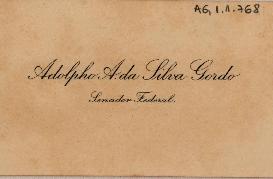 AG.1.1.768
Adolpho A. da Silva Gordo
Senador Federal.